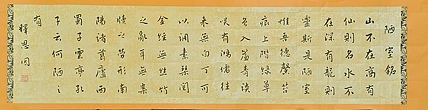 陋室銘
山不在高有
仙則名水不
在深有龍則
靈斯是陋室
惟吾德馨苔
痕上階綠草
色入簾青談
笑有鴻儒往
來無白丁可
以調素琴閱
金經無絲竹
之亂耳無案
牘之勞形南
陽諸葛廬西
蜀子雲亭孔
子云何陋之
有
釋